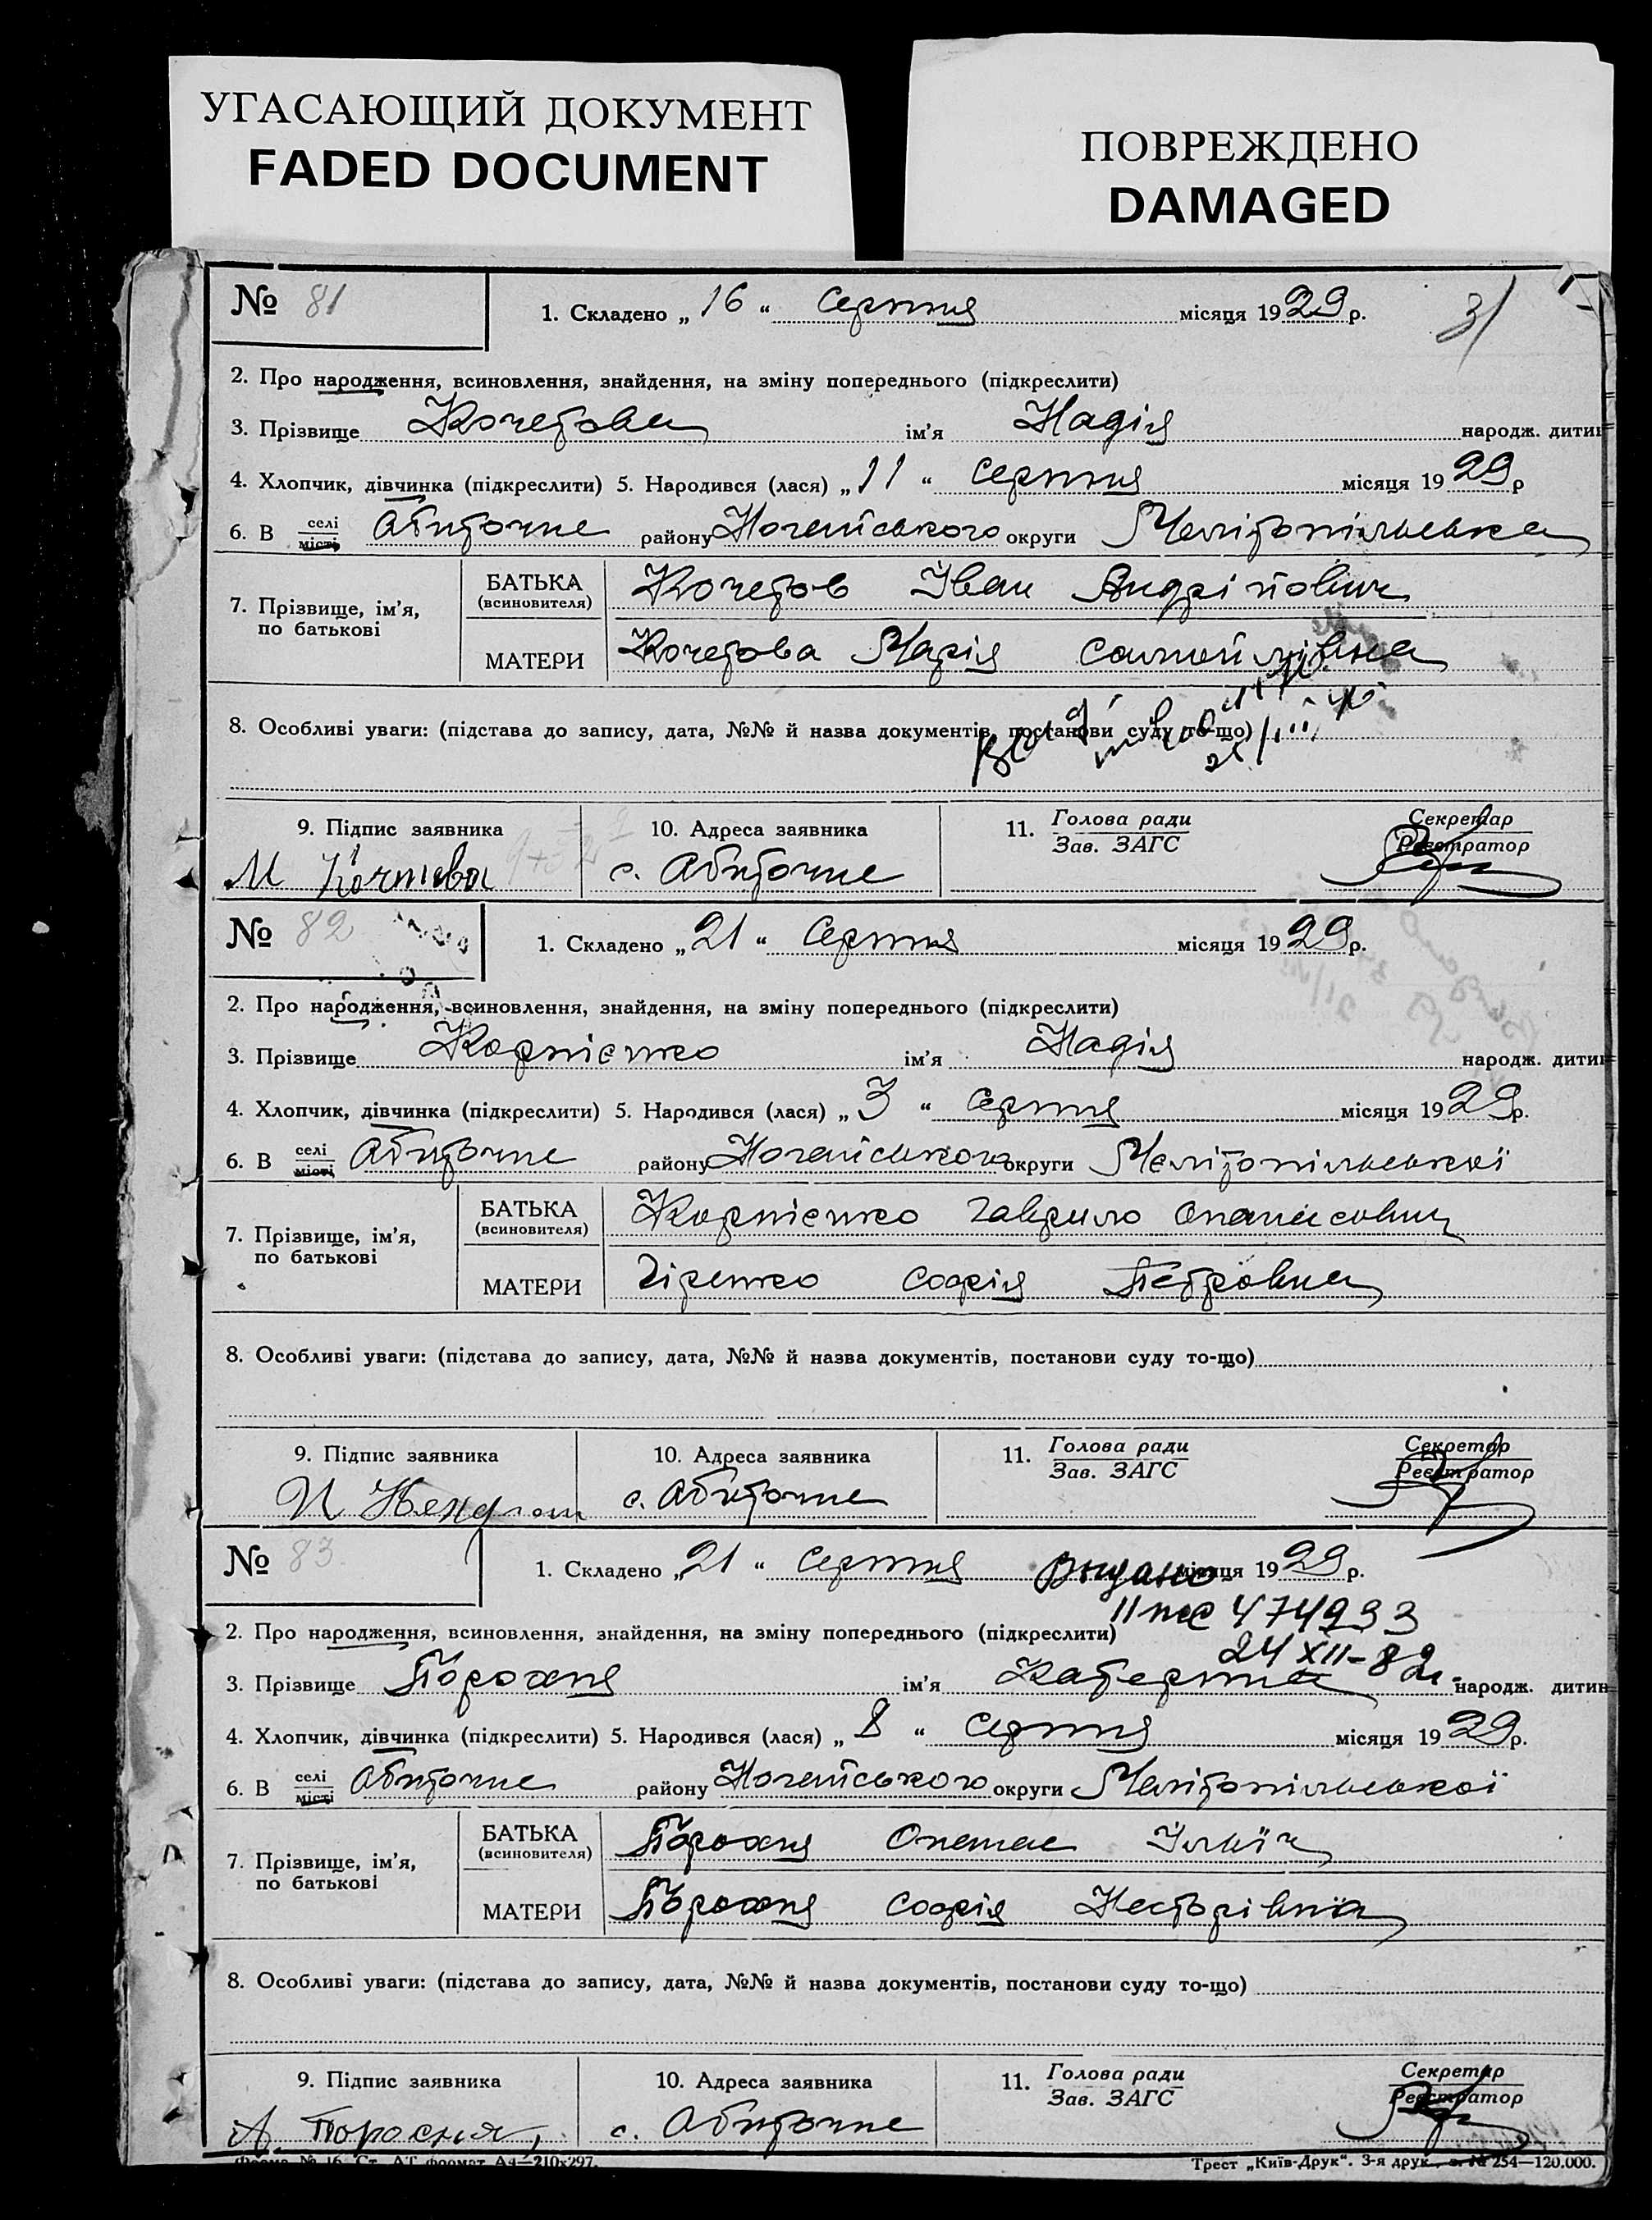 УГАСАЮЩИЙ ДОКУМЕНТ
FADED DOCUMENT
ПОВРЕЖДЕНО
DAMAGED
№ 81
1. Складено „16“ серпня місяця 1929 р.
31
2. Про народження, всиновлення, знайдення, на зміну попереднього (підкреслити)
3. Прізвище Кочетова ім'я Надія народж. дитин
4. Хлопчик, дівчинка (підкреслити) 5. Народився (лася) „11“ серпня місяця 1929 р
6. В селі місті Абиточне району Ногайського округи Мелітопільська
7. Прізвище, ім'я, по батькові
БАТЬКА (всиновителя) Кочетов Іван Андрійович
МАТЕРИ Кочетова Марія Самойлівна
8. Особливі уваги: (підстава до запису, дата, №№ й назва документів, постанови суду то-що)
9. Підпис заявника 10. Адреса заявника 11. Голова ради Зав. ЗАГС Секретар Реєстратор
М с. Абиточне
№ 82
1. Складено „21“ серпня місяця 1929 р.
2. Про народження, всиновлення, знайдення, на зміну попереднього (підкреслити)
3. Прізвище Корнієнко ім'я Надія народж. дитин
4. Хлопчик, дівчинка (підкреслити) 5. Народився (лася) „3“ серпня місяця 1929 р.
6. В селі місті Абиточне району Ногайського округи Мелітопільської
7. Прізвище, ім'я, по батькові
БАТЬКА (всиновителя) Корнієнко Гаврило Опанасович
МАТЕРИ Гіренко Софія Петровна
8. Особливі уваги: (підстава до запису, дата, №№ й назва документів, постанови суду то-що)
9. Підпис заявника 10. Адреса заявника 11. Голова ради Зав. ЗАГС Секретар Реєстратор
с. Абиточне
№ 83
1. Складено „21“ серпня місяця 1929 р.
Выдано
474933
2. Про народження, всиновлення, знайдення, на зміну попереднього (підкреслити)
24 XII-82г.
3. Прізвище Порохня ім'я Катерина народж. дитин
4. Хлопчик, дівчинка (підкреслити) 5. Народився (лася) „8“ серпня місяця 1929 р.
6. В селі місті Абиточне району Ногайського округи Мелітопільської
7. Прізвище, ім'я, по батькові
БАТЬКА (всиновителя) Порохня Опанас Ількіч
МАТЕРИ Порохня Софія Несторівна
8. Особливі уваги: (підстава до запису, дата, №№ й назва документів, постанови суду то-що)
9. Підпис заявника 10. Адреса заявника 11. Голова ради Зав. ЗАГС Секретар Реєстратор
А. Порохня с. Абиточне
Форма № 16. Ст. АТ формат А4—210х297.
Трест „Київ-Друк“. 3-я друк., з. № 254—120.000.